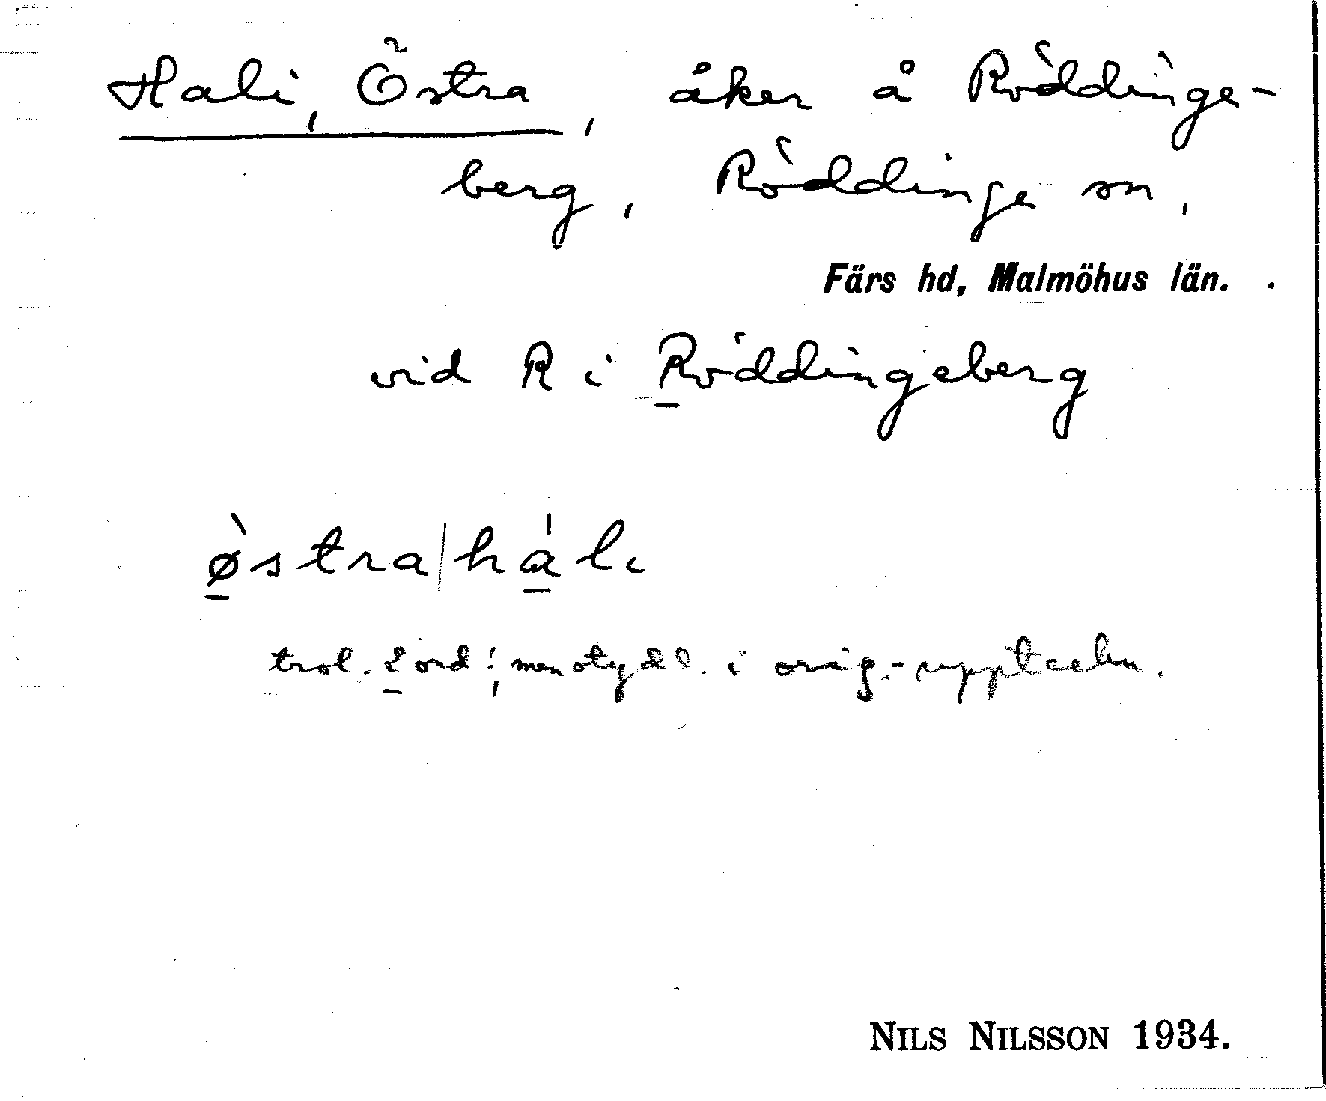 Hali, Östra, åker å Röddinge-
berg, Röddinge sn,
Färs hd, Malmöhus län.
vid R i Röddingeberg
ø̀stra|háli
trol. 2 ord!, men otydl. i orig.-uppteckn.
NILS NILSSON 1934.